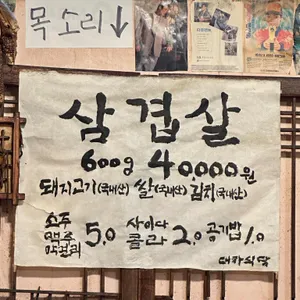 목소리↓
삼겹살
600g 40,000원
돼지고기(국내산) 쌀(국내산) 김치(국내산)
소주 맥주 막걸리 5.0 사이다 콜라 2.0 공기밥 1.0
대가식당